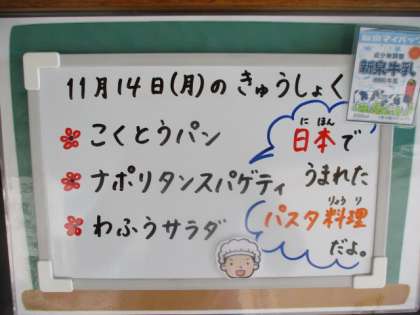 11月14日(月)のきゅうしょく
こくとうパン
ナポリタンスパゲティ
わふうサラダ
にほん
日本で
うまれた
りょうり
パスタ料理
だよ。
新泉牛乳